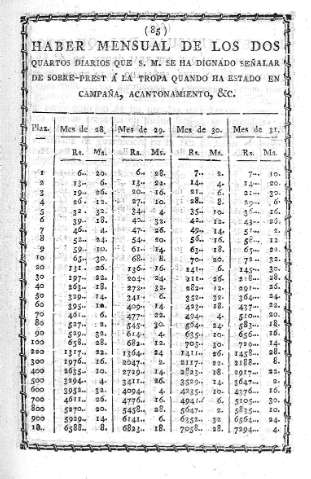 (85)
HABER MENSUAL DE LOS DOS
QUARTOS DIARIOS QUE S. M. SE HA DIGNADO SEÑALAR
DE SOBRE-PREST Á LA TROPA QUANDO HA ESTADO EN
CAMPAÑA, ACANTONAMIENTO, &C.
Plaz. Mes de 28. Mes de 29. Mes de 30. Mes de 31.
Rs. Ms. Rs. Ms. Rs. Ms. Rs. Ms.
1 6.. 20. 6.. 28. 7.. 2. 7.. 10.
2 13.. 6. 13.. 22. 14.. 4. 14.. 20.
3 19.. 26. 20.. 16. 21.. 6. 21.. 30.
4 26.. 12. 27.. 10. 28.. 8. 29.. 6.
5 32.. 32. 34.. 4. 35.. 10. 36.. 16.
6 39.. 18. 40.. 32. 42.. 12. 43.. 26.
7 46.. 4. 47.. 26. 49.. 14. 51.. 2.
8 52.. 24. 54.. 20. 56.. 16. 58.. 12.
9 59.. 10. 61.. 14. 63.. 18. 65.. 22.
10 65.. 30. 68.. 8. 70.. 20. 72.. 32.
20 131.. 26. 136.. 16. 141.. 6. 145.. 30.
30 197.. 22. 204.. 24. 211.. 26. 218.. 28.
40 263.. 18. 272.. 32. 282.. 12. 291.. 26.
50 329.. 14. 341.. 6. 352.. 32. 364.. 24.
60 395.. 10. 409.. 14. 423.. 18. 437.. 22.
70 461.. 6. 477.. 22. 494.. 4. 510.. 20.
80 527.. 2. 545.. 30. 564.. 24. 583.. 18.
90 529.. 32. 614.. 4. 635.. 10. 656.. 16.
100 658.. 28. 682.. 12. 705.. 30. 729.. 14.
200 1317.. 22. 1364.. 24. 1411.. 26. 1458.. 28.
300 1976.. 16. 2047.. 2. 2117.. 22. 2188.. 8.
400 2635.. 10. 2729.. 14. 2823.. 18. 2917.. 22.
500 3294.. 4. 3411.. 26. 3529.. 14. 3647.. 2.
600 3952.. 32. 4094.. 4. 4235.. 10. 4376.. 16.
700 4611.. 26. 4776.. 16. 4941.. 6. 5105.. 30.
800 5270.. 20. 5458.. 28. 5647.. 2. 5835.. 10.
900 5929.. 14. 6141.. 6. 6352.. 32. 6564.. 24.
10.. 6588.. 8. 6823.. 18. 7058.. 28. 7294.. 4.